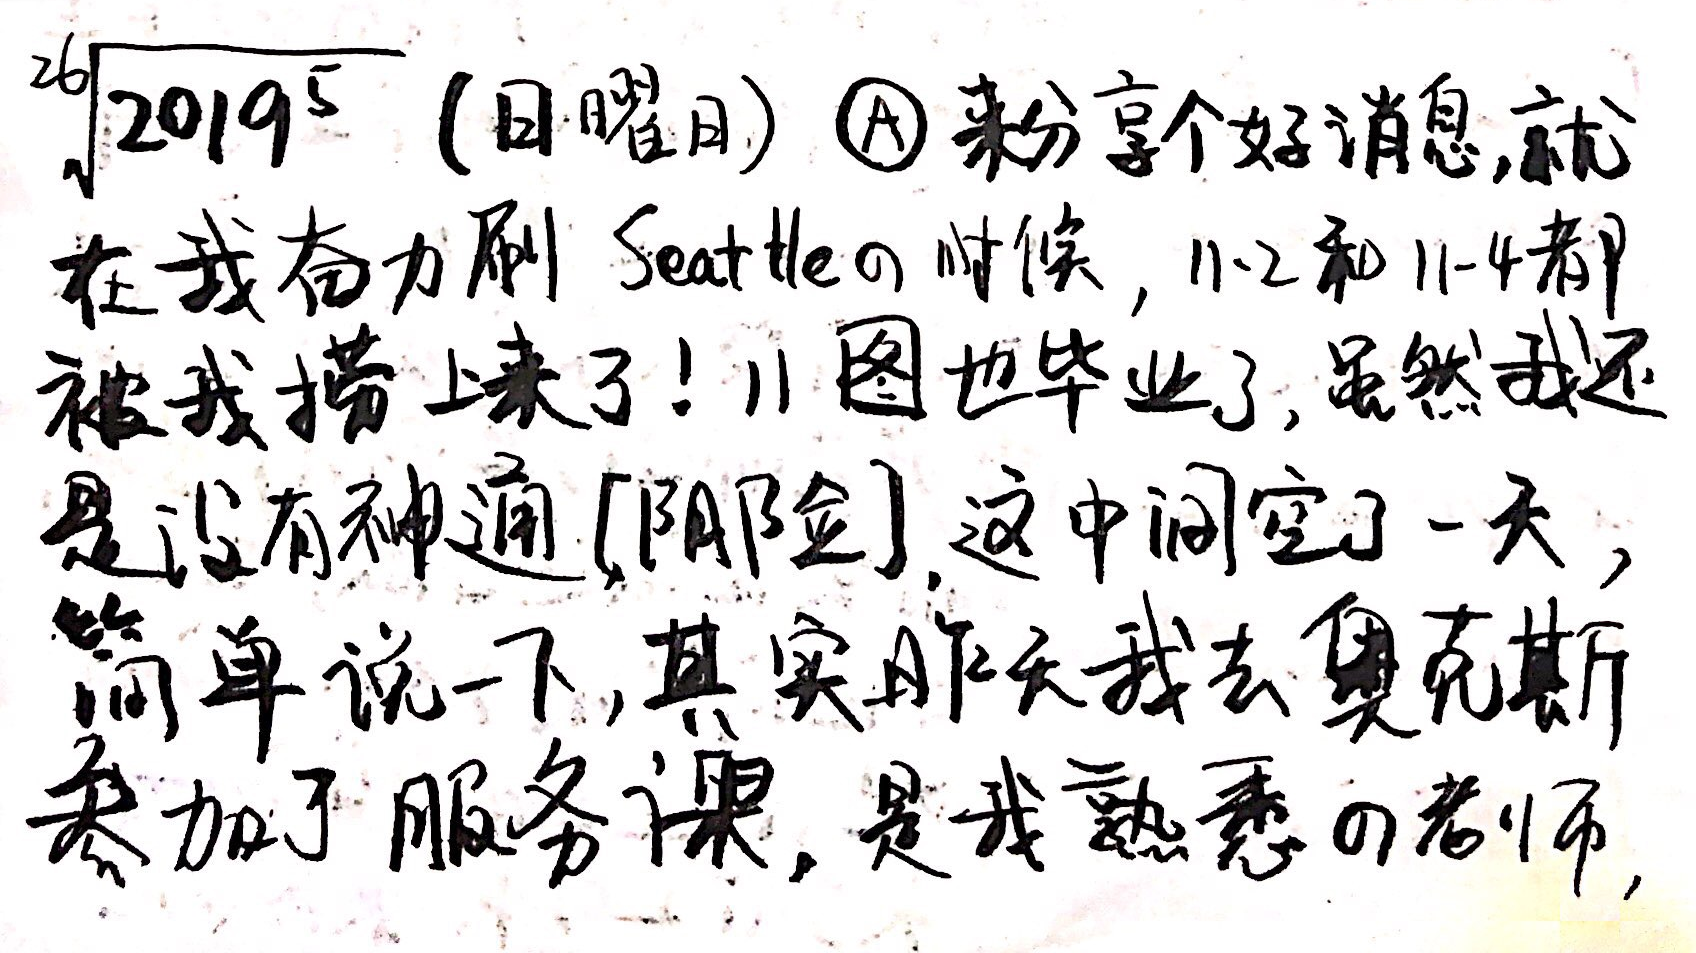 26√2019⁵ (日曜日) Ⓐ 来分享个好消息,就
在我奋力刷 Seattleの时候, 11-2和11-4都
被我捞上来了! 11图也毕业了,虽然我还
是没有神通[阴险],这中间空了一天,
简单说一下,其实昨天我去奥克斯
参加了服务课,是我熟悉の老师,